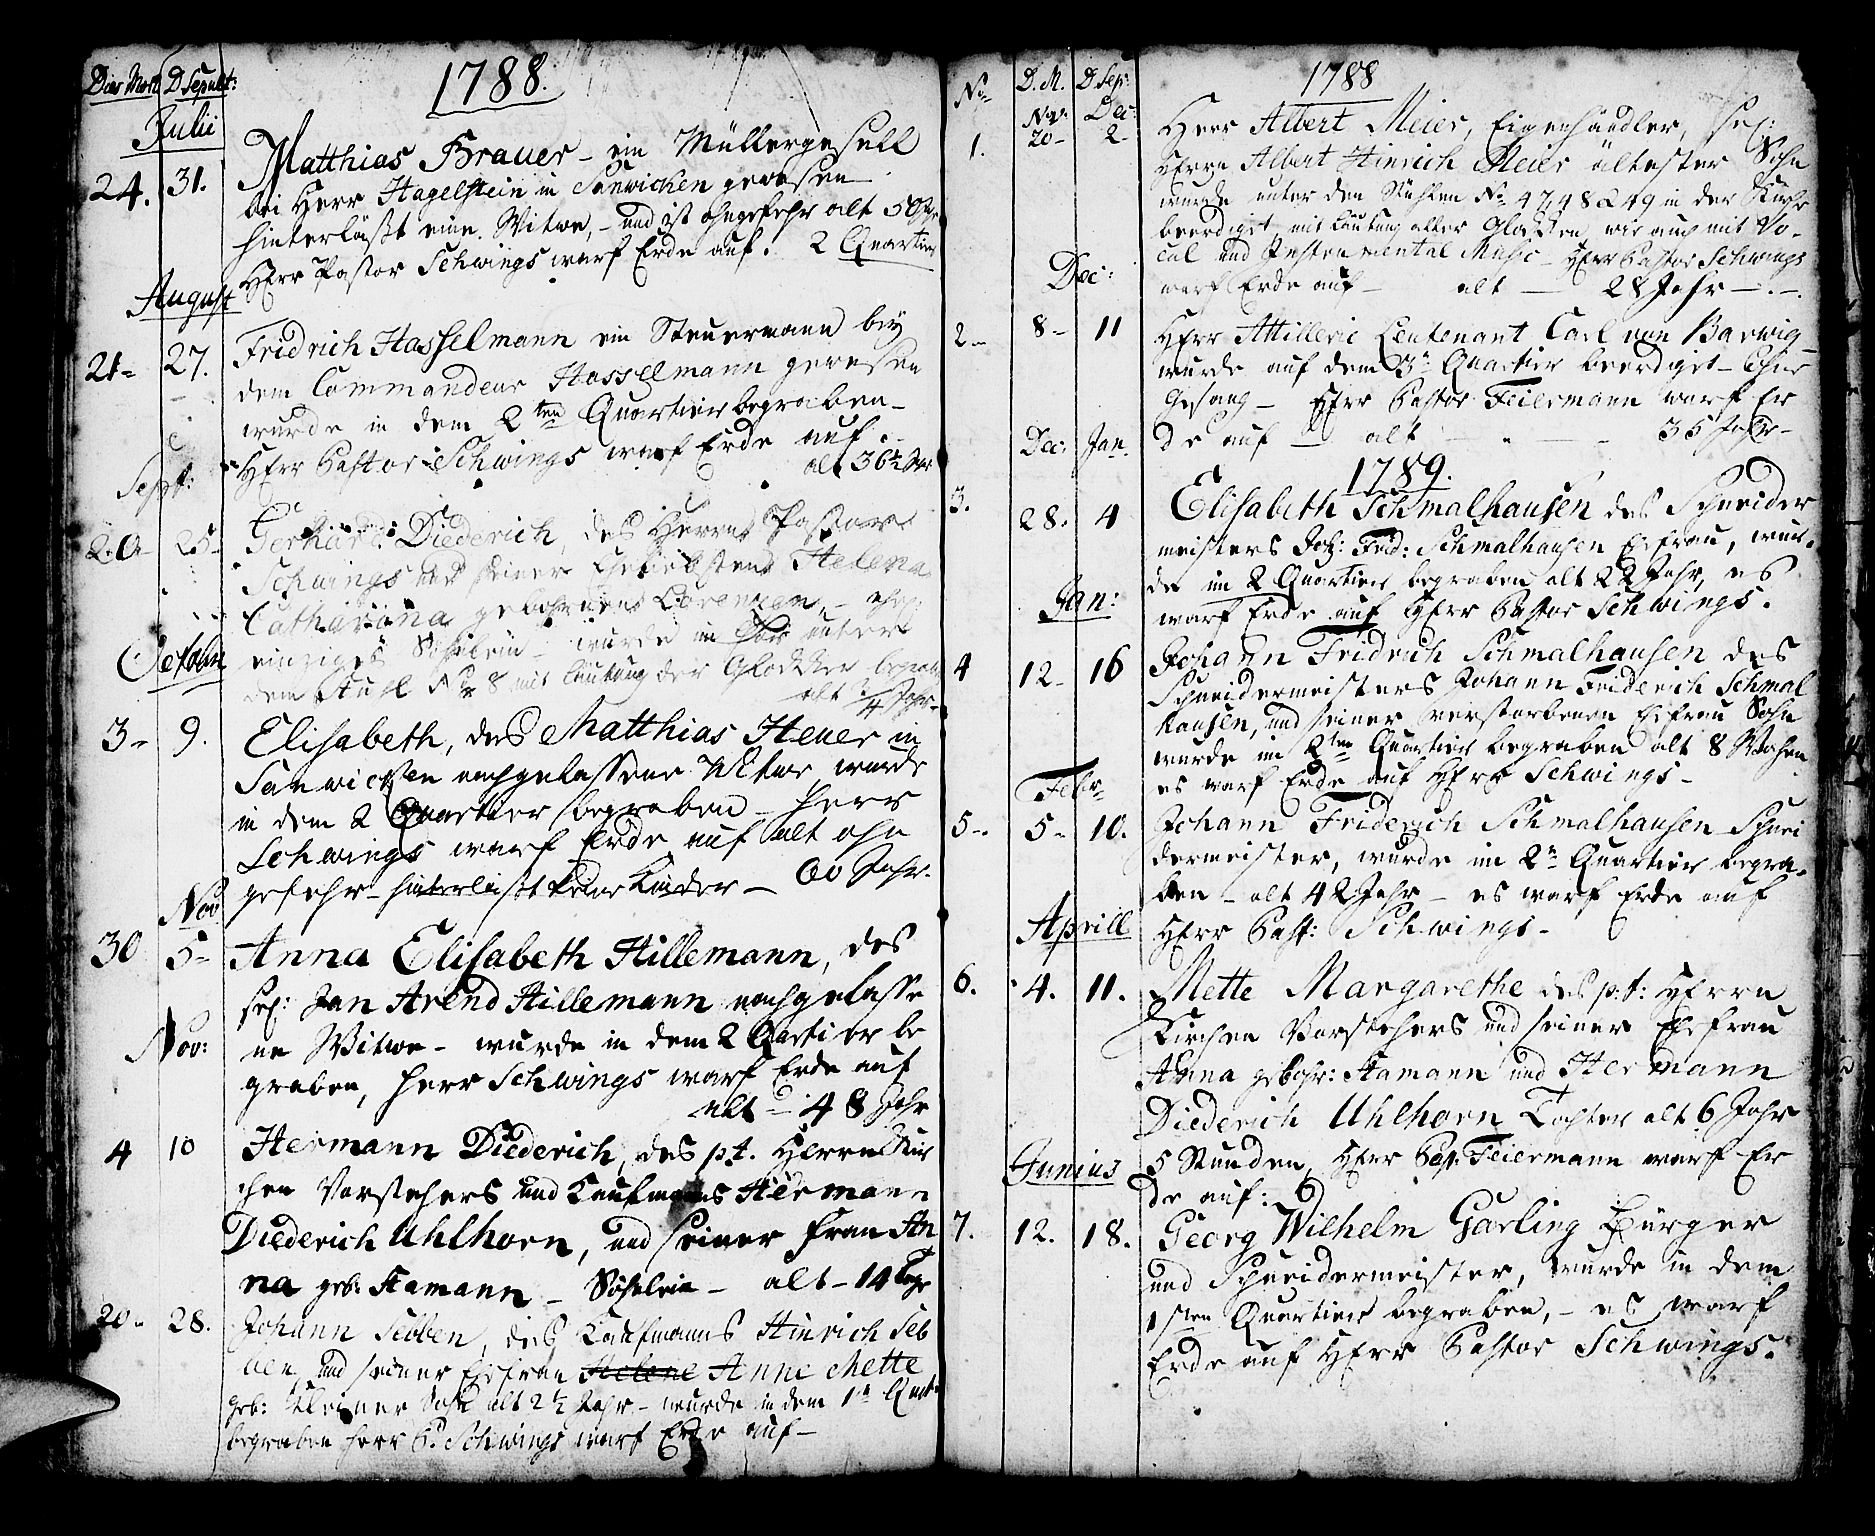 Dies Mort D Sepult:
1788.
Julii
24. 31. Matthias Brauer - ein Müllergesell
bei Herr Hagelstein in Sanwicken gewesen
hinterläßt eine Witwe, - und ist ohngefehr alt 50 Jahr
Herr Pastor Schwings warf Erde auf. 2 Quartier
August
21- 27. Fridrich Hasselmann ein Steuermann bey
dem Commandeur Hasselmann gewesen
wurde in dem 2ten Quartier begraben -
Herr Pastor Schwings warf Erde auf -
alt 36½ Jahr
Sept:
20- 25- Gerhard Diederich, des Herrn Pastor
Schwings und seiner Eheliebsten Helena
Catharina gebohrnen Lorenzen, - ehel:
einziges Söhnlein - wurde im Chor unter
dem Stuhl No 8 mit Lautung der Glocken begraben
alt ¾ Jahr -
October
3- 9. Elisabeth, des Matthias Heuer in
Sanwicken nachgelassene Witwe, wurde
in dem 2 Quartier begraben - Herr
Schwings warf Erde auf alt ohn
gefehr - hinterläßt keine Kinder - 60 Jahr.
Nov
30 5- Anna Elisabeth Hillemann, des
sel: Jan Arend Hillemann nachgelasse
ne Witwe - wurde in dem 2 Qartier be
graben, Herr Schwings warf Erde auf
alt - 48 Jahr
Nov:
4 10 Hermann Diederich, des p.t. Herrn Kir
chen Vorstehers und Kaufmanns Hermann
Diederich Uhlhorn, und seiner Frau An
na geb: Hamann - Söhnlein - alt - 14 Tage
20- 28. Johann Sebben, des Kaufmanns Hinrich Seb
ben, und seiner Ehefrau Helene Anne Mette
geb: Kleiner Sohn alt 2½ Jahr - wurde in dem 1n Quart:
begraben Herr P. Schwings warf Erde auf -
No D. M. D Sep:
1788
Nov: Dec:
1. 20- 2- Herr Albert Meier, Eigenhändler, sel:
Herrn Albert Hinrich Meier ältester Sohn
wurde unter den Stühlen No 47, 48 & 49 in der Kirche
beerdiget, mit Lautung aller Glocken, wie auch mit Vo-
cal und Instrumental Music - Herr Pastor Schwings
warf Erde auf - alt - 28 Jahr -.-
Dec:
2- 8- 11 Herr Attillerie Leutenant Carl von Barwig
wurde auf dem 3n Quartier beerdiget - Ohne
Gesang - Herr Pastor Feiermann warf Er
de auf - alt - 35 Jahr -
Dec: Jan.
1789.
3. 28. 4 Elisabeth Schmalhausen des Schneider
meisters Joh: Frid: Schmalhausen Ehfrau, wur-
de im 2 Quartier begraben alt 22 Jahr, es
warf Erde auf Herr Pastor Schwings.
Jan:
4 12- 16 Johann Fridrich Schmalhausen des
Schneidermeisters Johann Friderich Schmal
hausen, und seiner verstorbenen Ehfrau Sohn
wurde im 2ten Quartier begraben alt 8 Wochen
es warf Erde auf Herr Schwings -
Febr-
5-. 5- 10. Johann Friderich Schmalhausen Schnei
dermeister, wurde im 2n Quartier begra-
ben - alt 42 Jahr - es warf Erde auf
Herr Past: Schwings -
Aprill
6. 4. 11. Mette Margarethe des p.t: Herrn
Kirchen Vorstehers und seiner Ehefrau
Anna gebohr: Hamann und Hermann
Diederich Uhlhorn Tochter alt 6 Jahr
5 Stunden, Herr Pas. Feiermann warf Er
de auf:
Junius
7. 12. 18. Georg Wilhelm Garling Bürger
und Schneidermeister, wurde in dem
1sten Quartier begraben, - es warf
Erde auf Herr Pastor Schwings.